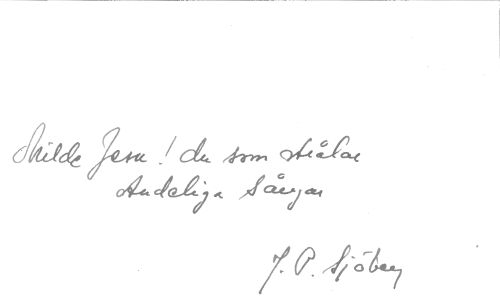 Milde Jesu! du som strålar
Andeliga Sånger
J. P. Sjöberg